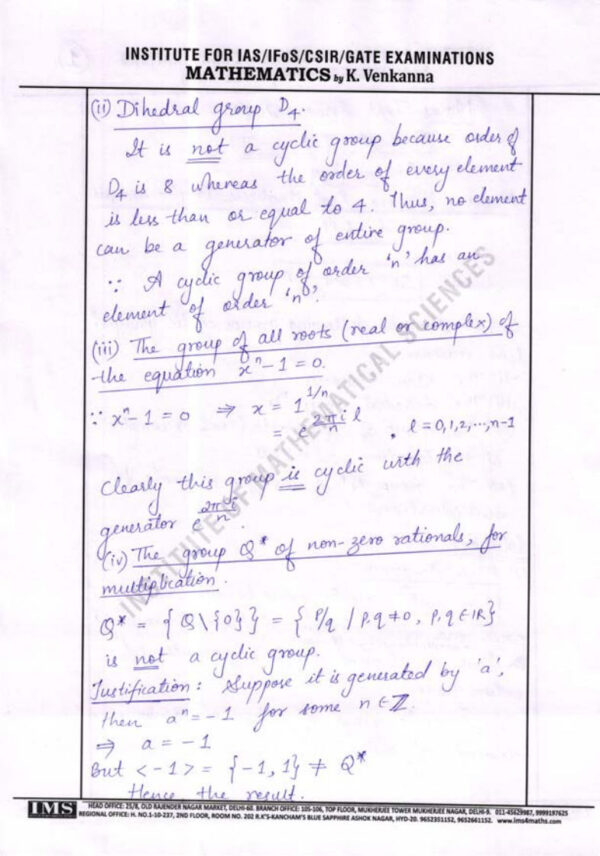 INSTITUTE FOR IAS/IFoS/CSIR/GATE EXAMINATIONS
MATHEMATICS by K. Venkanna
(ii) Dihedral group D₄.
It is not a cyclic group because order of
D₄ is 8 whereas the order of every element
is less than or equal to 4. Thus, no element
can be a generator of entire group.
∵ A cyclic group of order 'n' has an
element of order 'n'.
(iii) The group of all roots (real or complex) of
the equation xⁿ-1 = 0.
∵ xⁿ-1 = 0 ⇒ x = 1^{1/n}
= e^{2πi/n l}, l = 0,1,2,...,n-1
Clearly this group is cyclic with the
generator e^{2πi/n}.
(iv) The group Q* of non-zero rationals, for
multiplication.
Q* = {Q\{0}} = {P/q / P,q ≠ 0, P,q ∈ IR}
is not a cyclic group.
Justification: Suppose it is generated by 'a',
then aⁿ = -1 for some n ∈ ℤ.
⇒ a = -1
But <-1> = {-1, 1} ≠ Q*
Hence the result.
INSTITUTE OF MATHEMATICAL SCIENCES
IMS
HEAD OFFICE: 25/8, OLD RAJENDER NAGAR MARKET, DELHI-60. BRANCH OFFICE: 105-106, TOP FLOOR, MUKHERJEE TOWER MUKHERJEE NAGAR, DELHI-9. 011-45629987, 9999197625
REGIONAL OFFICE: H. NO.1-10-237, 2ND FLOOR, ROOM NO. 202 R.K'S-KANCHAM'S BLUE SAPPHIRE ASHOK NAGAR, HYD-20. 9652351152, 9652661152. www.ims4maths.com